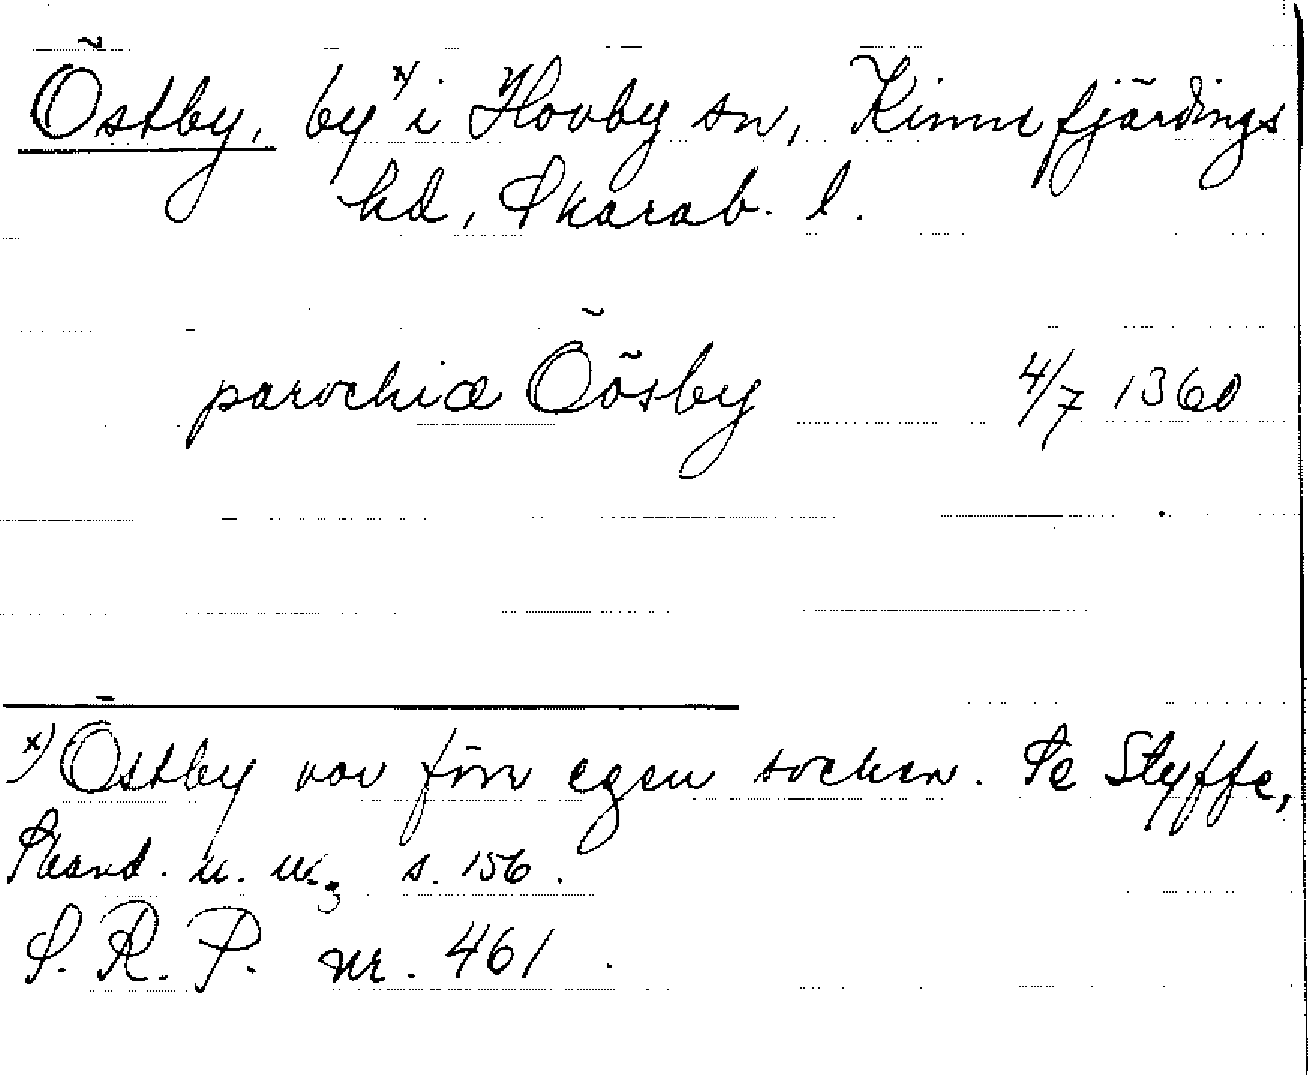 Östby, by x) i Hovby sn, Kinnefjärdings
hd, Skarab. l.
parochiæ Öösby 4/7 1360
x) Östby var förr egen socken. Se Styffe,
Skand. u. u.3 s. 156.
S. R. P. nr. 461.